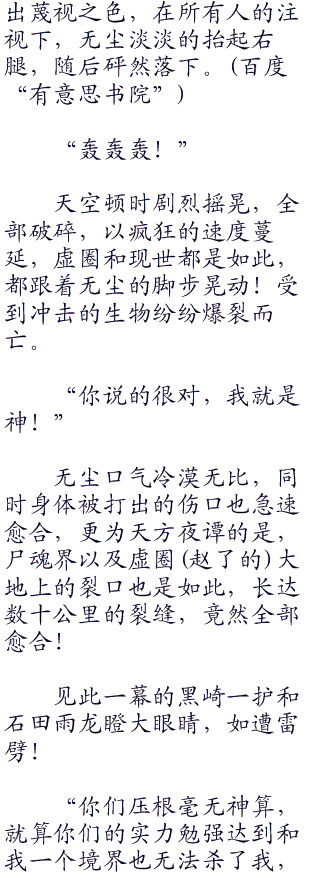 出蔑视之色，在所有人的注
视下，无尘淡淡的抬起右
腿，随后砰然落下。(百度
“有意思书院”)
“轰轰轰！”
天空顿时剧烈摇晃，全
部破碎，以疯狂的速度蔓
延，虚圈和现世都是如此，
都跟着无尘的脚步晃动！受
到冲击的生物纷纷爆裂而
亡。
“你说的很对，我就是
神！”
无尘口气冷漠无比，同
时身体被打出的伤口也急速
愈合，更为天方夜谭的是，
尸魂界以及虚圈(赵了的)大
地上的裂口也是如此，长达
数十公里的裂缝，竟然全部
愈合！
见此一幕的黑崎一护和
石田雨龙瞪大眼睛，如遭雷
劈！
“你们压根毫无神算，
就算你们的实力勉强达到和
我一个境界也无法杀了我，